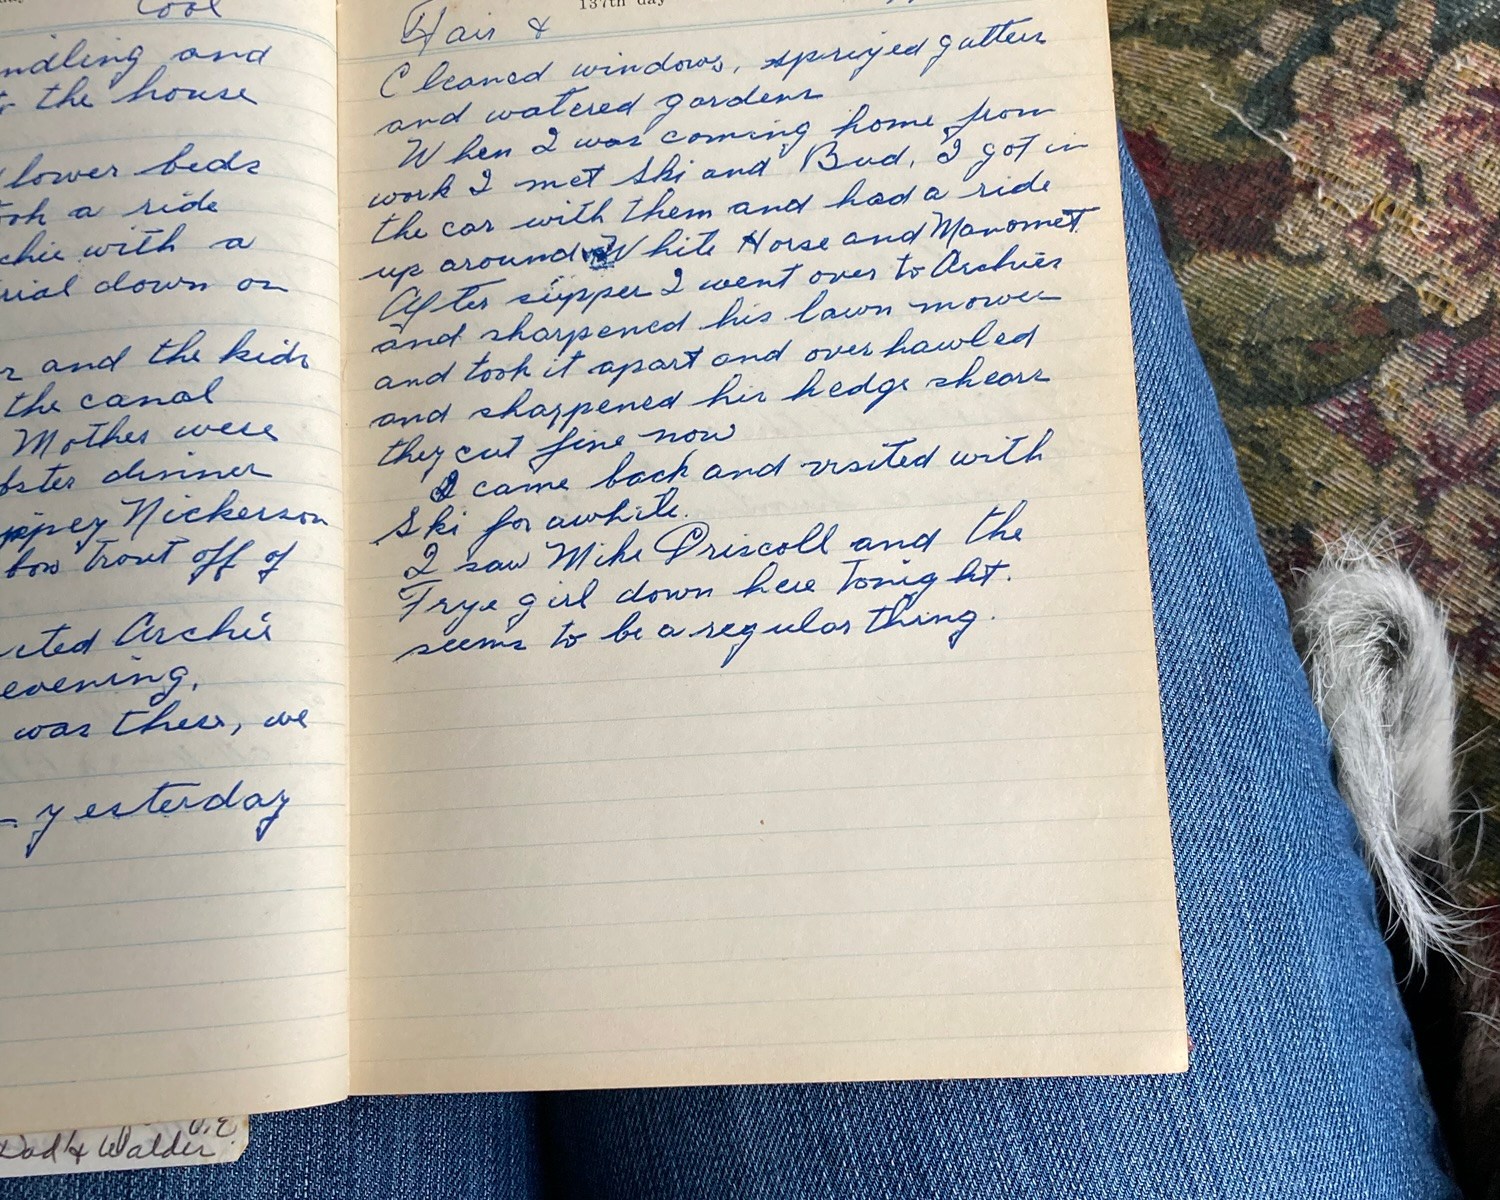 Cool
and
the house
lower beds
a ride
with a
down on
and the kids
the canal
Mother were
dinner
Nickerson
trout off of
Archie
evening.
was there, we
yesterday
Dad & Walder
137th day
Fair &
Cleaned windows, sprayed gutters
and watered gardens
When I was coming home from
work I met Ski and Bud, I got in
the car with them and had a ride
up around White Horse and Manomet
After supper I went over to Archies
and sharpened his lawn mower
and took it apart and over hawled
and sharpened his hedge shears
they cut fine now
I came back and visited with
Ski for awhile.
I saw Mike Driscoll and the
Frye girl down here tonight.
seems to be a regular thing.